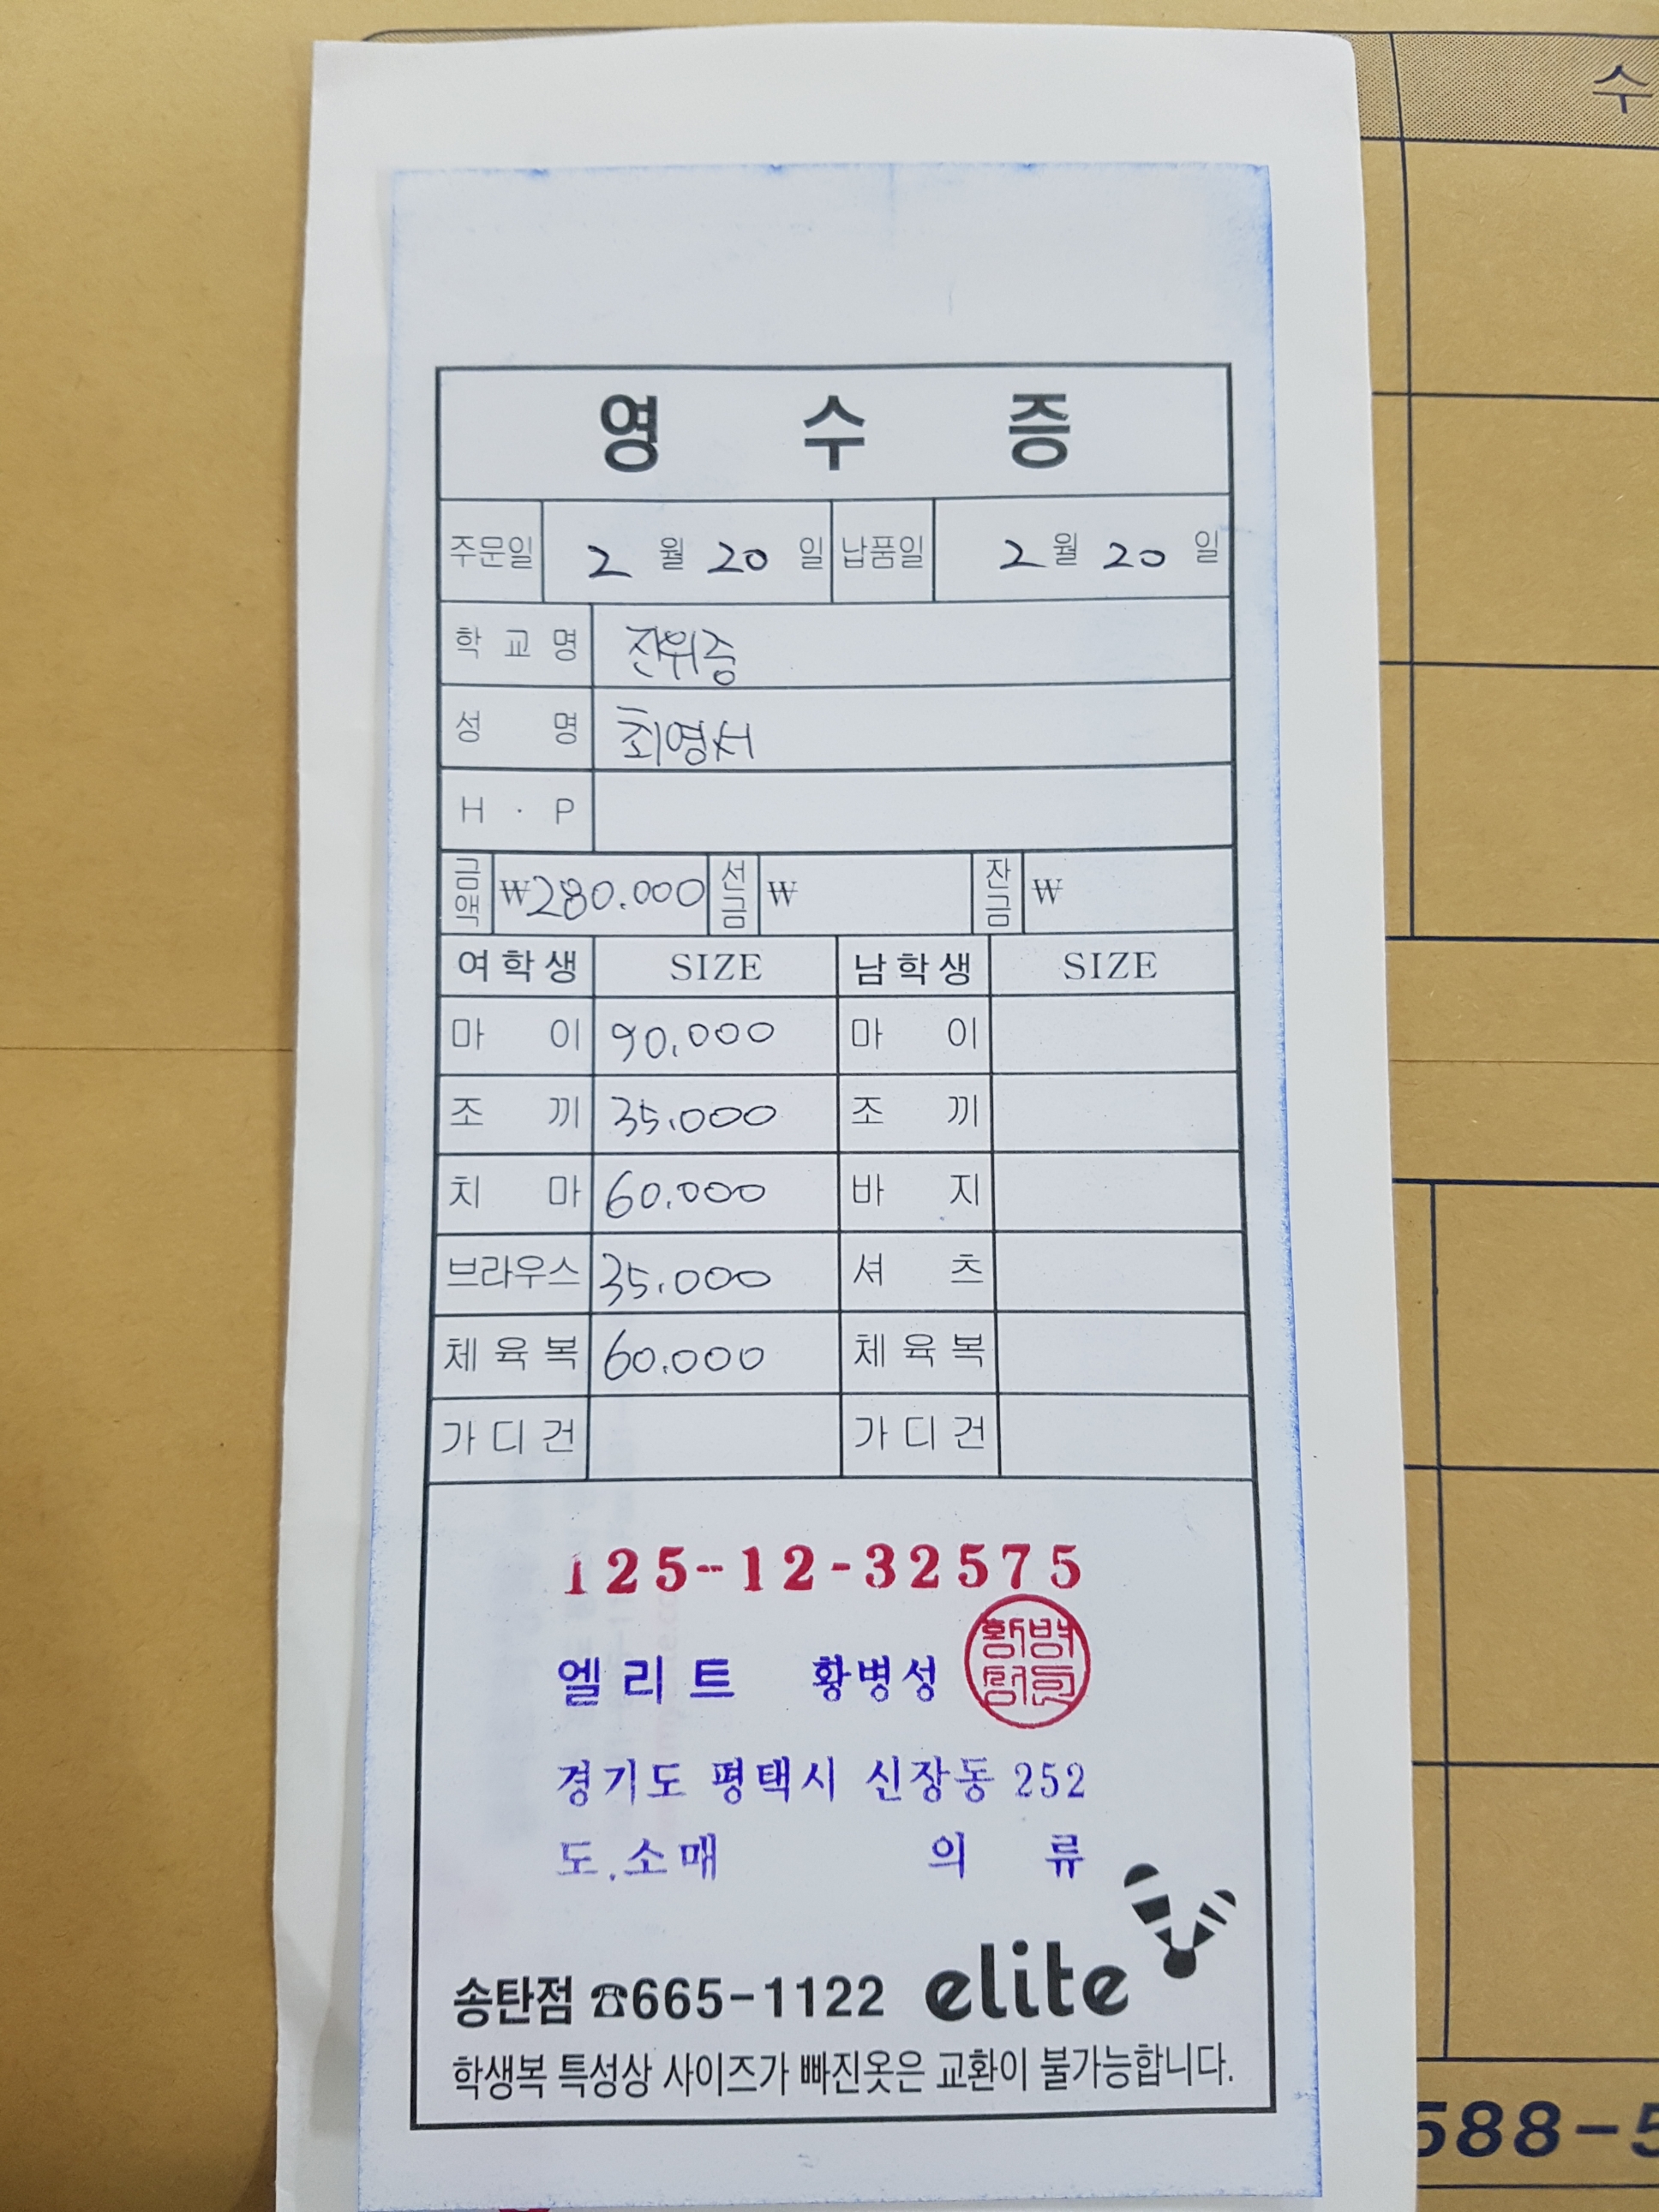 수
영 수 증
주문일 2 월 20 일 납품일 2 월 20 일
학 교 명 진위중
성 명 최영서
H · P
금액 ₩280.000 선금 ₩ 잔금 ₩
여학생 SIZE 남학생 SIZE
마 이 90.000 마 이
조 끼 35.000 조 끼
치 마 60.000 바 지
브라우스 35.000 셔 츠
체 육 복 60.000 체 육 복
가 디 건 가 디 건
125-12-32575
엘리트 황병성
경기도 평택시 신장동 252
도.소매 의 류
송탄점 ☎665-1122 elite
학생복 특성상 사이즈가 빠진옷은 교환이 불가능합니다.
588-5